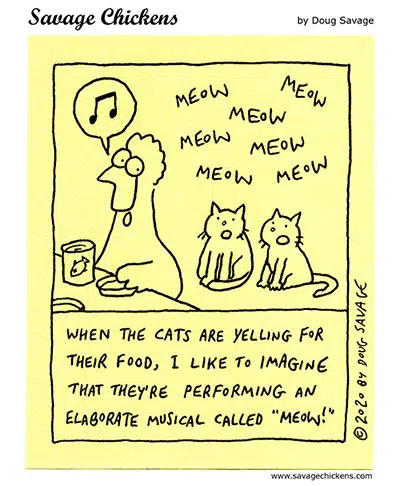 Savage Chickens
by Doug Savage
MEOW
MEOW
MEOW
MEOW
MEOW
MEOW
MEOW
WHEN THE CATS ARE YELLING FOR
THEIR FOOD, I LIKE TO IMAGINE
THAT THEY'RE PERFORMING AN
ELABORATE MUSICAL CALLED "MEOW!"
© 2020 BY DOUG SAVAGE
www.savagechickens.com